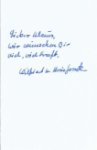 Lieber Klaus,
wir wünschen Dir
viel, viel Kraft.
Wilfried u.